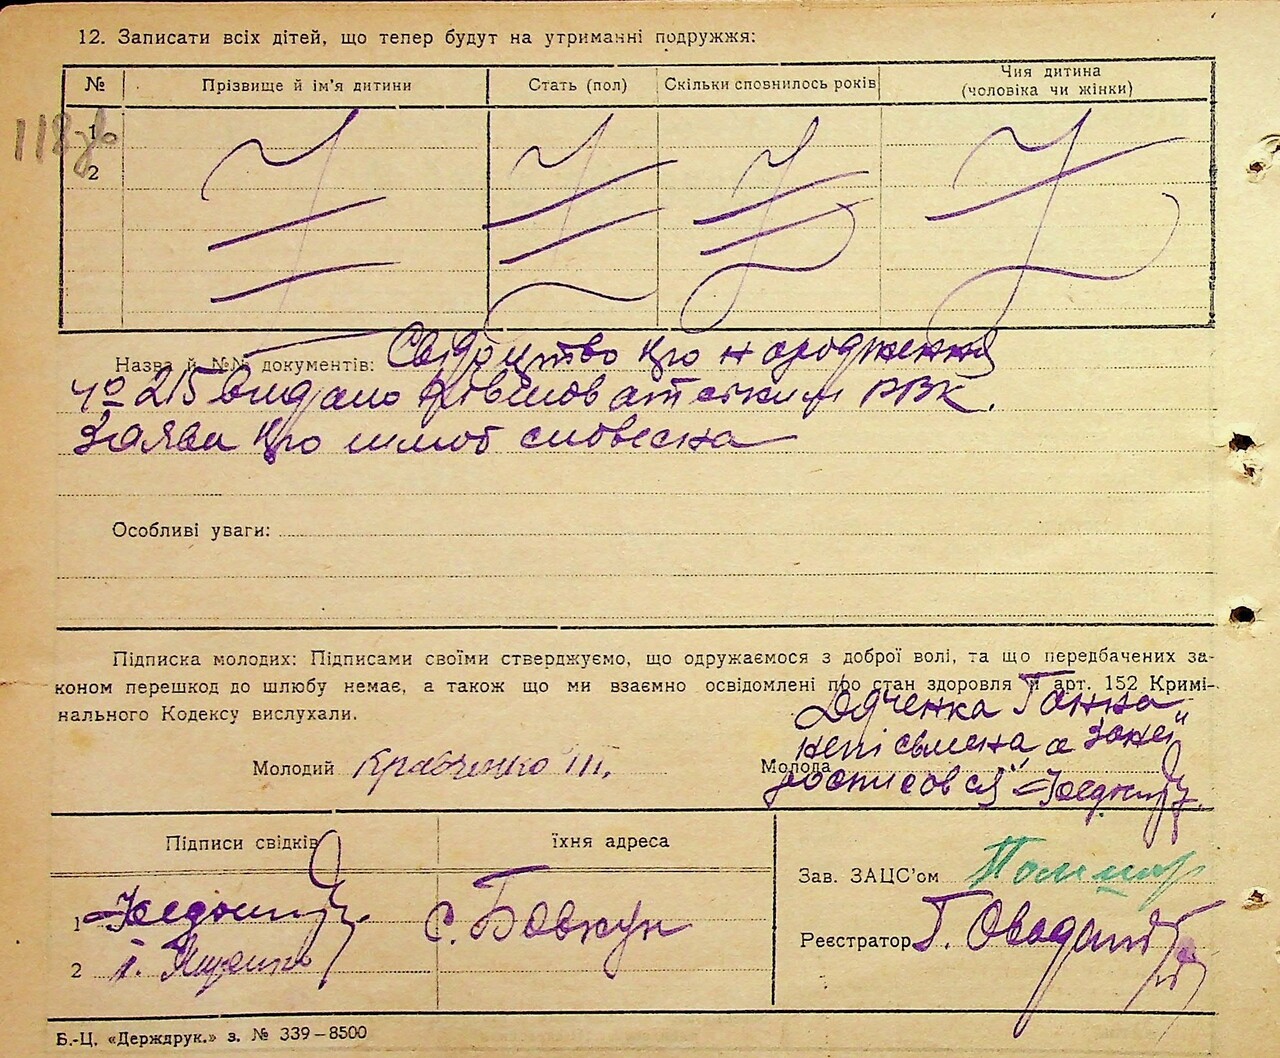 12. Записати всіх дітей, що тепер будут на утриманні подружжя:
№ Прізвище й ім'я дитини Стать (пол) Скільки сповнилось років Чия дитина
(чоловіка чи жінки)
118зв
1
2
Назва й №№ документів: Свідоцтво про народження
№ 215 видано РВК.
Заява про шлюб словесна
Особливі уваги:
Підписка молодих: Підписами своїми стверджуємо, що одружаємося з доброї волі, та що передбачених за-
коном перешкод до шлюбу немає, а також що ми взаємно освідомлені про стан здоровля й арт. 152 Кримі-
нального Кодексу вислухали.
Молодий Кравченко
Молода Дяченка Ганна
неписьмена а за неї
росписовся
Підписи свідків їхня адреса
1 с. Бовкун
2 Г. Яценко
Зав. ЗАЦС'ом
Реєстратор Г.
Б.-Ц. «Держдрук.» з. № 339–8500